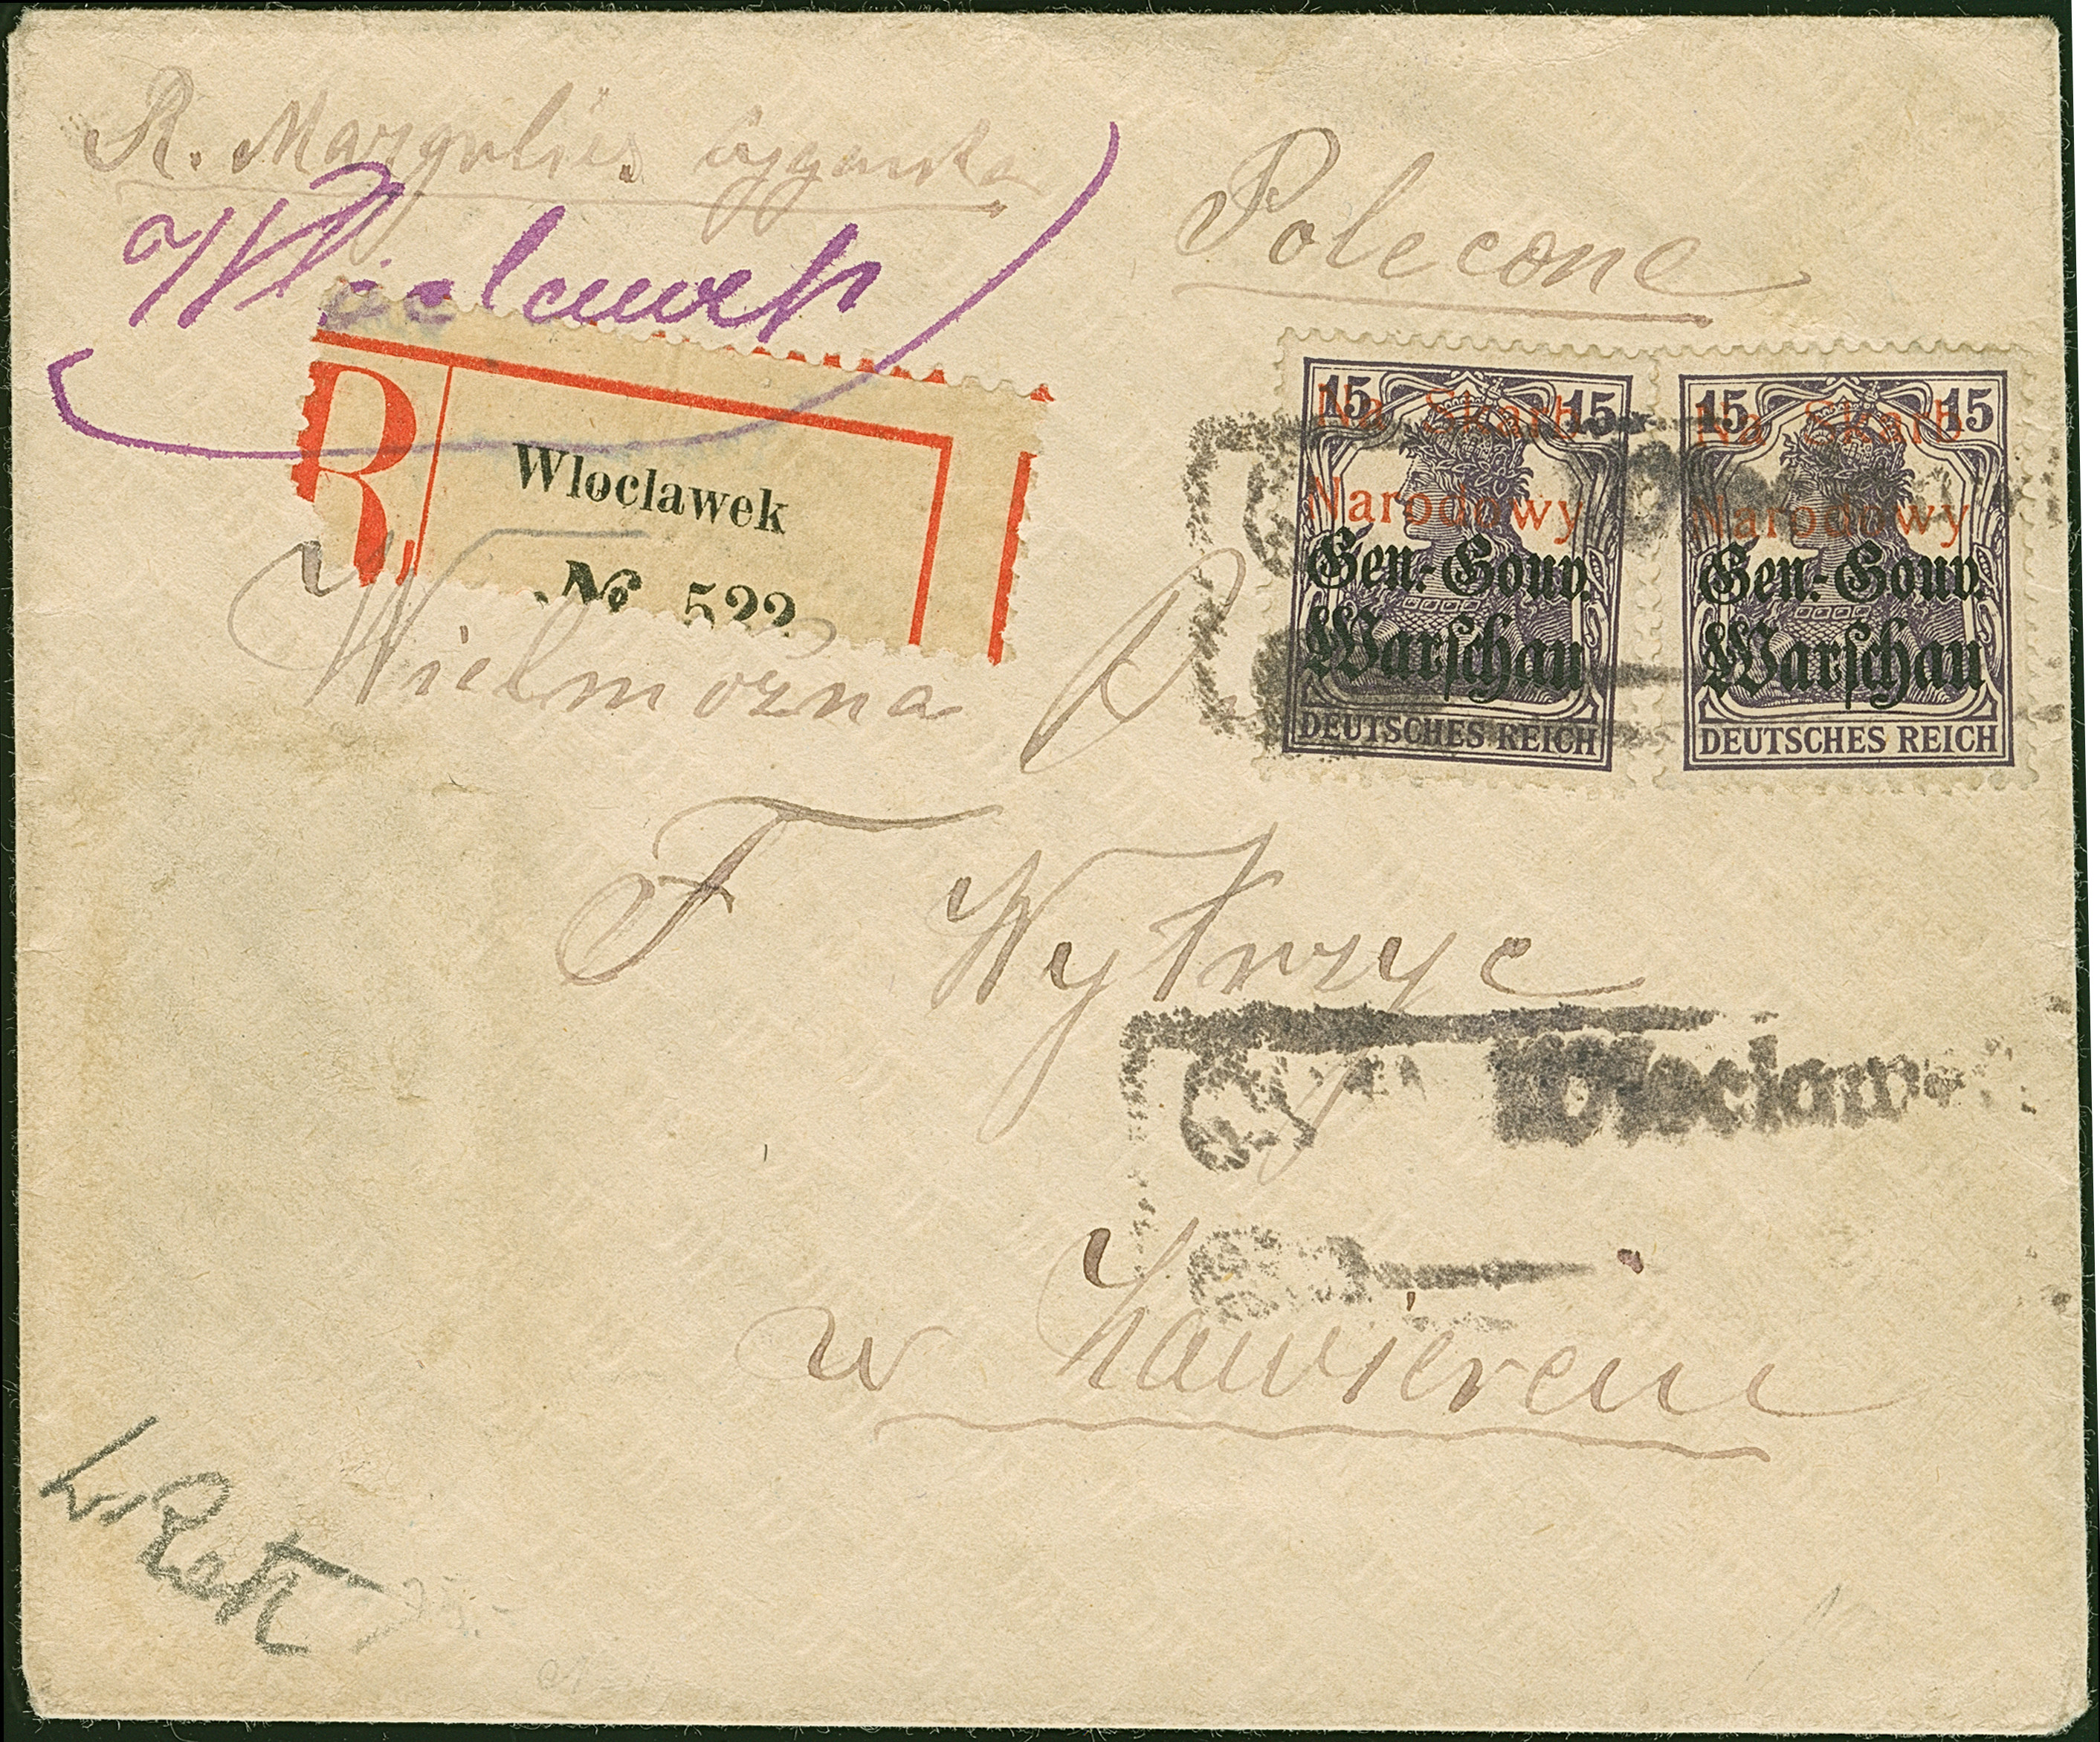 R. Margulies
Polecone
Wloclawek
R
Wloclawek
№ 522
15 15
Na Skarb
Narodowy
Gen.-Gouv.
Warschau
DEUTSCHES REICH
15 15
Na Skarb
Narodowy
Gen.-Gouv.
Warschau
DEUTSCHES REICH
Wielmożna P.
F Wytrzyc
w Zawierciu